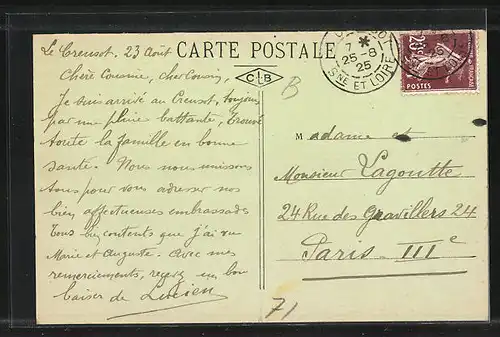 CARTE POSTALE
C B
Le Creusot. 23 Août
Chère Cousine, cher Cousin,
Je suis arrivé au Creusot, toujours
par une pluie battante, trouvé
toute la famille en bonne
santé. Nous nous unissons
tous pour vous adresser nos
bien affectueuses embrassades
Tous bien contents que j'ai vu
Marie et Auguste. Avec mes
remerciements, recevez un bon
baiser de Lucien
7
25-8
25
SNE ET LOIRE
20c
POSTES
B
Madame et
Monsieur Lagoutte
24 Rue des Gravilliers 24
Paris IIIe
71